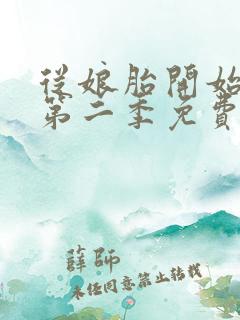 從娘胎開始
第二季免費
薛師
未經同意禁止轉載